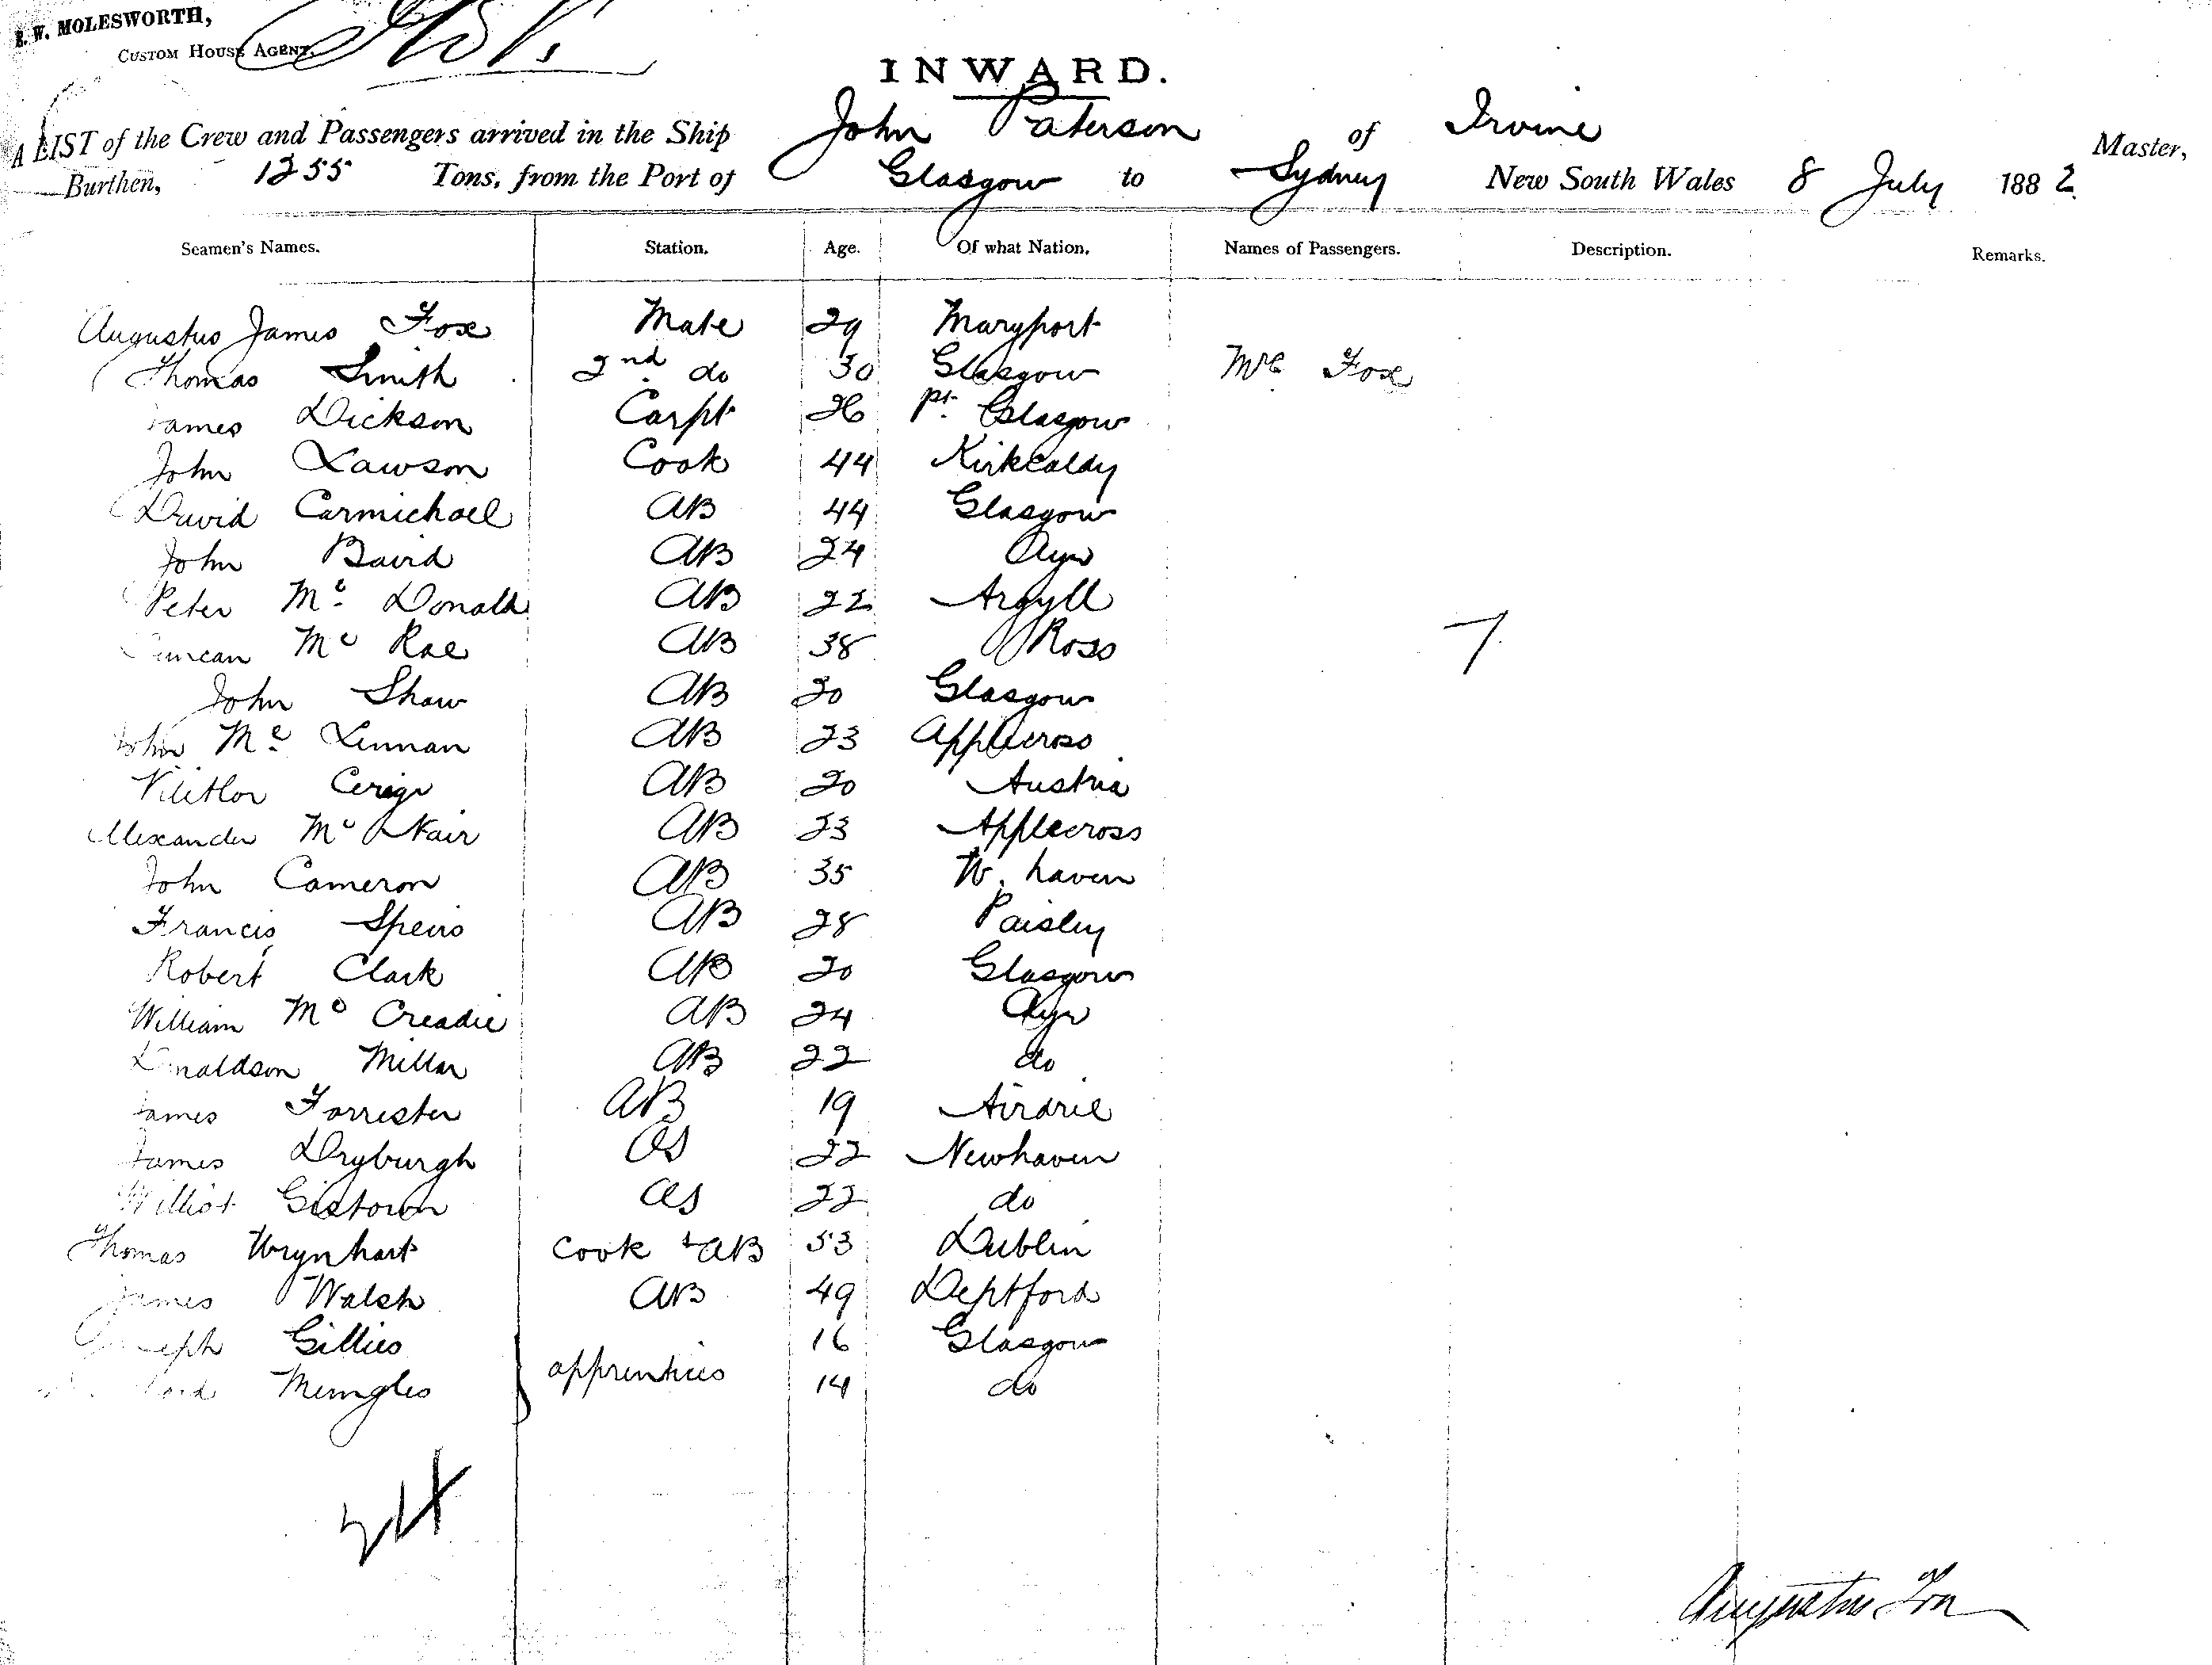 E. W. MOLESWORTH,
CUSTOM HOUSE AGENT.
INWARD.
A LIST of the Crew and Passengers arrived in the Ship John Paterson of Irvine Master,
Burthen, 1255 Tons, from the Port of Glasgow to Sydney New South Wales 8 July 1882
Seamen's Names. Station. Age. Of what Nation. Names of Passengers. Description. Remarks.
Augustus James Fox Mate 29 Maryport
Thomas Smith 2nd do 30 Glasgow Mrs Fox
James Dickson Carpt 26 Pt. Glasgow
John Lawson Cook 44 Kirkcaldy
David Carmichael AB 44 Glasgow
John Baird AB 24 Ayr
Peter Mc Donald AB 22 Argyll
Duncan Mc Rae AB 38 Ross
John Shaw AB 20 Glasgow
John Mc Lennan AB 23 Applecross
AB 20 Austria
Alexander Mc Nair AB 23 Applecross
John Cameron AB 35 W. haven
Francis Speirs AB 28 Paisley
Robert Clark AB 20 Glasgow
William Mc Creadie AB 24 Ayr
Donaldson Millar AB 22 do
James Forrester AB 19 Airdrie
James Dryburgh OS 22 Newhaven
OS 22 do
Thomas Wynhart Cook & AB 53 Dublin
James Walsh AB 49 Deptford
Joseph Gillies 16 Glasgow
apprentices
Meingles 14 do
24
Augustus Fox